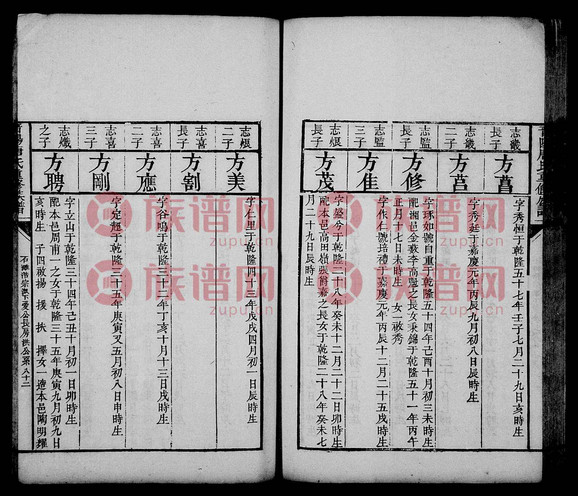 志畿
長子
方菖
字秀恒于乾隆五十七年壬子七月二十九日亥時生
志畿
二子
方莒
字秀廷于嘉慶元年丙辰九月初八日辰時生
志監
長子
方修
字球如號自重于乾隆五十四年己酉十月初三未時生
正月十七日未時生 女一 秀
志監
三子
方佳
字作人號培禮于嘉慶元年丙辰十二月二十五戌時生
志煨
長子
方茂
字 今于乾隆二十八年癸未十二月二十二日卯時生
配本邑高田 張 嘉之長女于乾隆二十八年癸未七
月二十九日辰時生
志煨
二子
方美
字仁里于乾隆四十三年戊戌四月初一日辰時生
志喜
長子
方割
字谷鳴于乾隆三十二年丁亥十月十三日戌時生
志喜
二子
方應
志喜
三子
方剛
字定 于乾隆三十五年庚寅又五月初八日申時生
志熾
之子
方聘
字立山于乾隆三十四年己丑十月初三日卯時生
配本邑周 一之女于乾隆三十五年庚寅九月初九日
亥時生 子四 揚 援 扶 擇 女一適本邑陶明耀
族谱网
zupu.cn
族谱网
zupu.cn